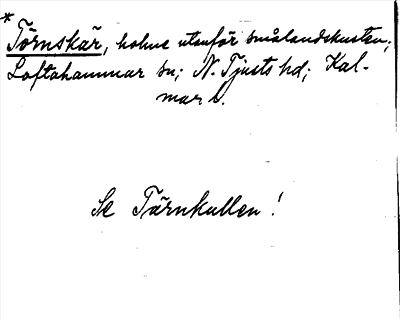 *
Törnskär, holme utanför smålandskusten;
Loftahammar sn; N. Tjusts hd; Kal-
mar l.
Se Tärnkullen!